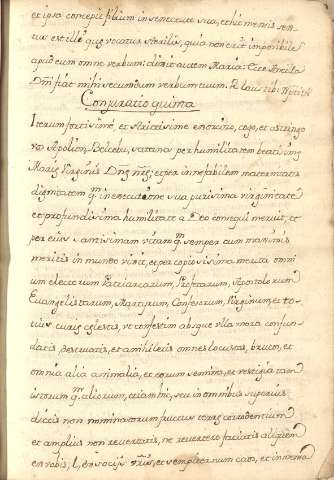 et ipsa concepit filium in senectute sua, et hic mensis sex-
tus est illi que vocatur sterilis, quia non erit imposibile
apud eum omne verbum: dixit autem Maria: Ecce Ancila
Dni fiat mihi secundum verbum tuum. R. Laus tibi
Conjuratio quinta
Iterum fortisime, et strictisime exorcizo, cogo, et astringo
vos Apolion, Belcebu, satanas per humilitatem beatisime
Mariæ Virginis Dnæ næ; et per inefabilem maternitatis
dignitatem qm in executione sua purisima virginitate
et profundisima humilitate a Deo consequi meruit, et
per eius santisimam vitam qm semper cum maximis
meritis in mundo vixit, et per copiosisima merita omni
um electorum Patriarcarum, Profetarum, Apostolorum
Euangelistarum, Martirum, Confesorum, Virginum, et to-
tius curiæ celestis, ut confestim absque ulla mora confun-
datis, destruatis, et anihiletis omnes locustas, brucos, et
omnia alia animalia, et eorum semina, et vestigia tam
istorum qm aliorum, etiam hic, seu in omnibus suprais
dictis non nominatorum fructus terræ corrodentium
et amplius non revertatis, ne revertere faciatis aliquem
ex vobis, l, ex socijs vris, et semper cum caso, et in